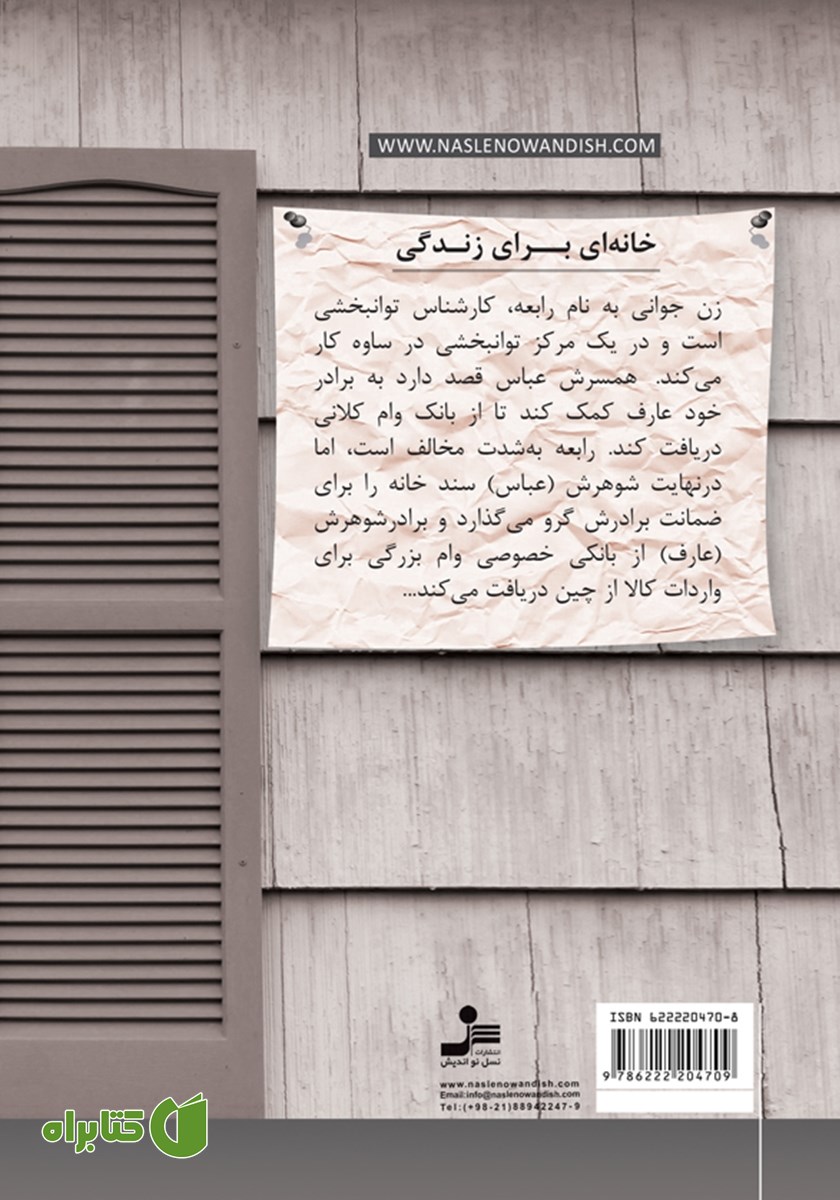 WWW.NASLENOWANDISH.COM
خانه‌ای بـــرای زنـدگی
زن جوانی به نام رابعه، کارشناس توانبخشی
است و در یک مرکز توانبخشی در ساوه کار
می‌کند. همسرش عباس قصد دارد به برادر
خود عارف کمک کند تا از بانک وام کلانی
دریافت کند. رابعه به‌شدت مخالف است، اما
درنهایت شوهرش (عباس) سند خانه را برای
ضمانت برادرش گرو می‌گذارد و برادرشوهرش
(عارف) از بانکی خصوصی وام بزرگی برای
واردات کالا از چین دریافت می‌کند...
انتشارات
نسل نو اندیش
www.naslenowandish.com
Email:info@naslenowandish.com
Tel:(+98-21)88942247-9
ISBN 622220470-8
9 786222 204709
کتابراه